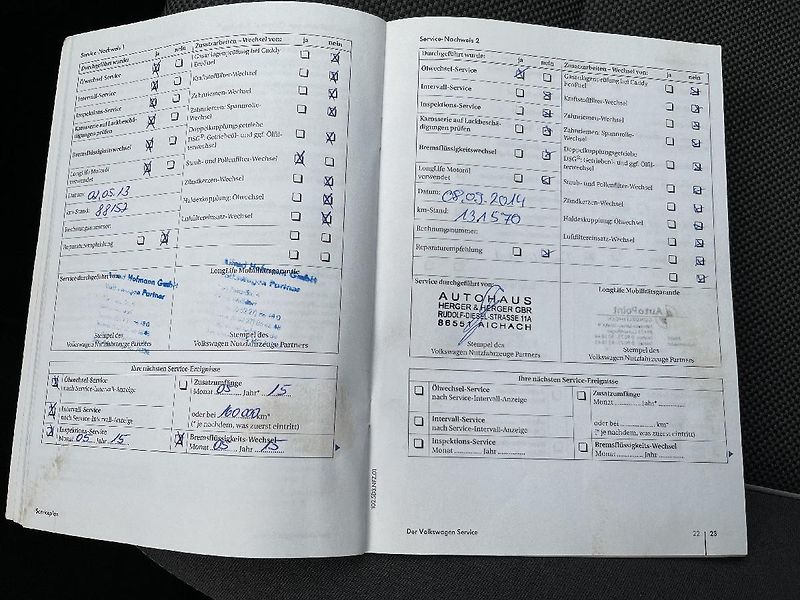 Service-Nachweis 1
Durchgeführt wurde: ja nein
Ölwechsel-Service
Intervall-Service
Inspektions-Service
Karosserie auf Lackbeschä-
digungen prüfen
Bremsflüssigkeitswechsel
LongLife Motoröl
verwendet
Datum: 02.05.13
km-Stand: 88157
Rechnungsnummer:
Reparaturempfehlung
Zusatzarbeiten – Wechsel von: ja nein
Gasanlagenprüfung bei Caddy
EcoFuel
Kraftstofffilter-Wechsel
Zahnriemen-Wechsel
Zahnriemen: Spannrolle-
Wechsel
Doppelkupplungsgetriebe
DSG®: Getriebeöl- und ggf. Ölfil-
terwechsel
Staub- und Pollenfilter-Wechsel
Zündkerzen-Wechsel
Haldexkupplung: Ölwechsel
Luftfiltereinsatz-Wechsel
Service durchgeführt von:
Hofmann GmbH
Volkswagen Partner
Stempel des
Volkswagen Nutzfahrzeuge Partners
LongLife Mobilitätsgarantie
Hofmann GmbH
Volkswagen Partner
Stempel des
Volkswagen Nutzfahrzeuge Partners
Ihre nächsten Service-Ereignisse
Ölwechsel-Service
nach Service-Intervall-Anzeige
Intervall-Service
nach Service-Intervall-Anzeige
Inspektions-Service
Monat 05 Jahr 15
Zusatzumfänge
Monat 05 Jahr* 15
oder bei 160000 km*
(* je nachdem, was zuerst eintritt)
Bremsflüssigkeits-Wechsel
Monat 05 Jahr 15
Serviceplan
Service-Nachweis 2
Durchgeführt wurde: ja nein
Ölwechsel-Service
Intervall-Service
Inspektions-Service
Karosserie auf Lackbeschä-
digungen prüfen
Bremsflüssigkeitswechsel
LongLife Motoröl
verwendet
Datum: 08.09.2014
km-Stand: 131570
Rechnungsnummer:
Reparaturempfehlung
Zusatzarbeiten – Wechsel von: ja nein
Gasanlagenprüfung bei Caddy
EcoFuel
Kraftstofffilter-Wechsel
Zahnriemen-Wechsel
Zahnriemen: Spannrolle-
Wechsel
Doppelkupplungsgetriebe
DSG®: Getriebeöl- und ggf. Ölfil-
terwechsel
Staub- und Pollenfilter-Wechsel
Zündkerzen-Wechsel
Haldexkupplung: Ölwechsel
Luftfiltereinsatz-Wechsel
Service durchgeführt von:
AUTOHAUS
HERGER & HERGER GBR
RUDOLF-DIESEL-STRASSE 11A
86551 AICHACH
Stempel des
Volkswagen Nutzfahrzeuge Partners
LongLife Mobilitätsgarantie
AutoPoint
Stempel des
Volkswagen Nutzfahrzeuge Partners
Ihre nächsten Service-Ereignisse
Ölwechsel-Service
nach Service-Intervall-Anzeige
Intervall-Service
nach Service-Intervall-Anzeige
Inspektions-Service
Monat ............ Jahr ............
Zusatzumfänge
Monat ............ Jahr* ............
oder bei ............ km*
(* je nachdem, was zuerst eintritt)
Bremsflüssigkeits-Wechsel
Monat ............ Jahr ............
Der Volkswagen Service
22 23